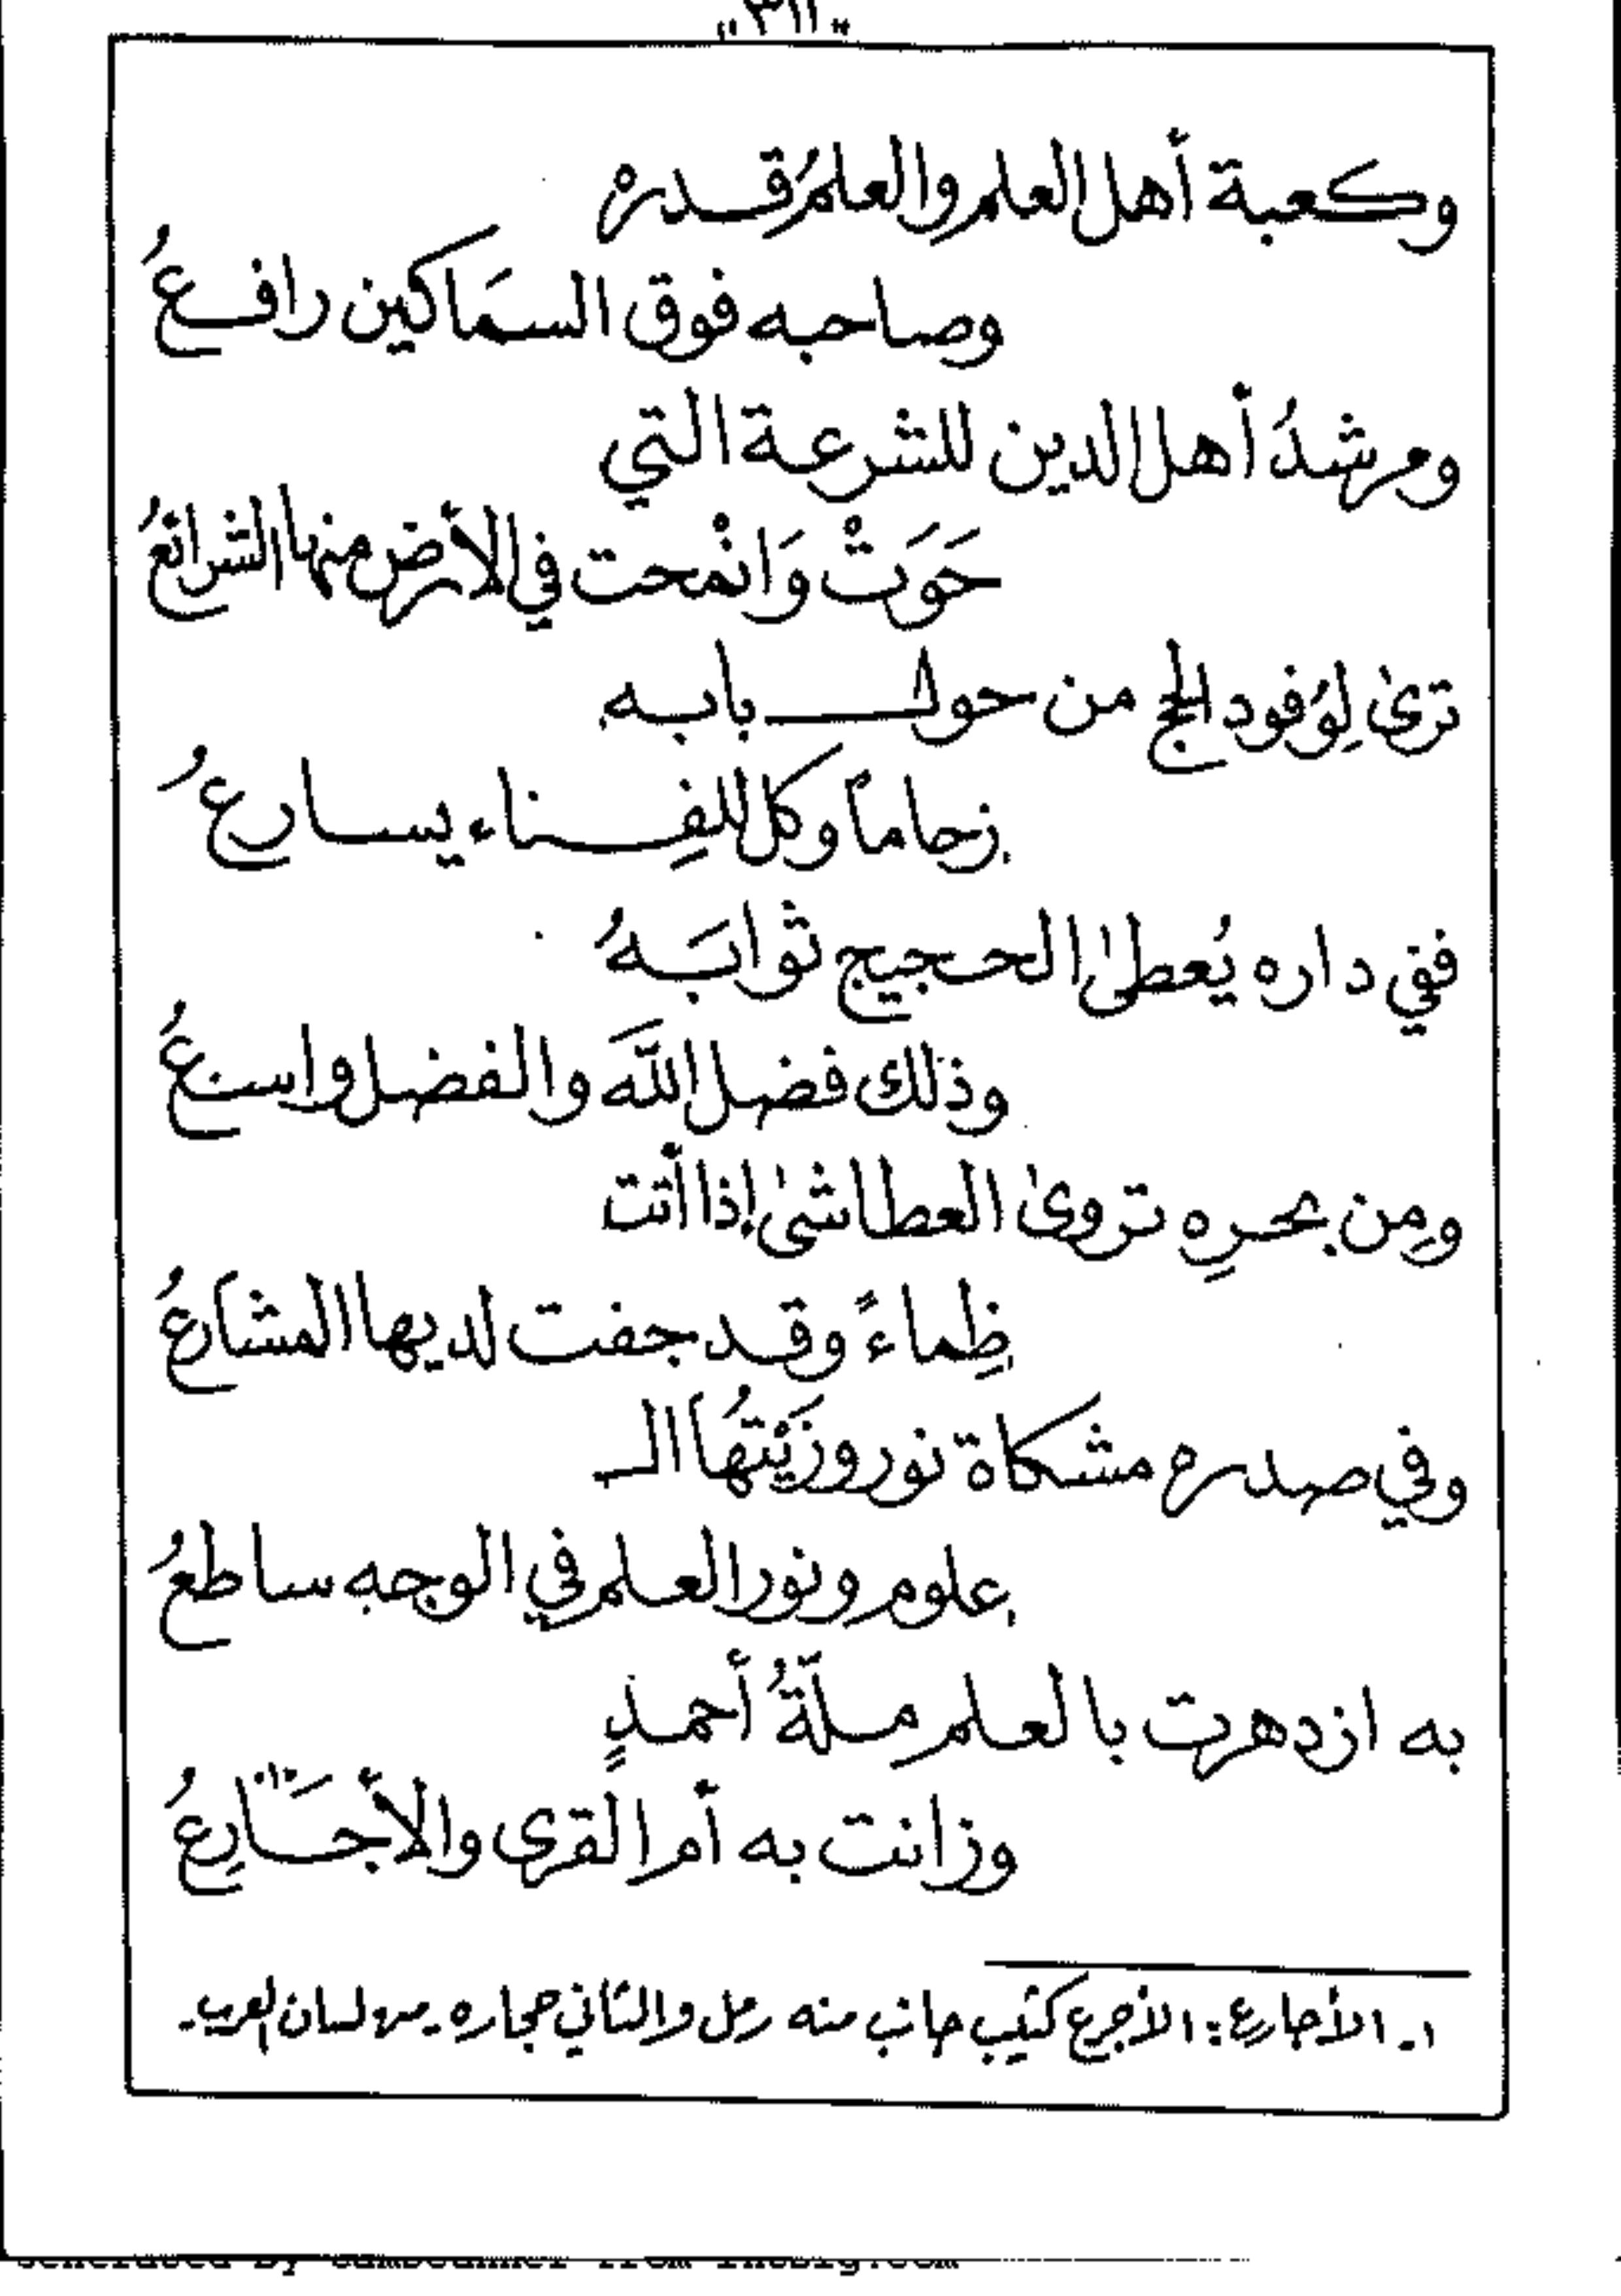 «٣١١»
وكعبة أهل العلم والعلمُ قدره
وصاحبه فوق السمَاكين رافعُ
ومرشدُ أهل الدين للشرعة التي
حَوَتْ وَانْمحت في الأرض منها الشرائعُ
ترىٰ لِوُفود الحج من حول بابه
زحاماً وكل للفِناء يسارعُ
ففي داره يُعطىٰ الحجيج ثوابَهُ
وذلك فضل اللَّه والفضل واسعُ
ومِن بحرِه تروىٰ العطاشىٰ إذا أتت
ظِماءً وقد جفت لديها المشارعُ
وفي صدره مشكاة نور وزَيْتُها الـ
علوم ونور العلم في الوجه ساطعُ
به ازدهرت بالعلم ملّةُ أحمدٍ
وزانت به أم القرى والأجَارِعُ
١ـ الأجارع: الأجرع كثيب جانب منه رمل والثاني حجاره. من لسان العرب.
Generated by CamScanner from intsig.com